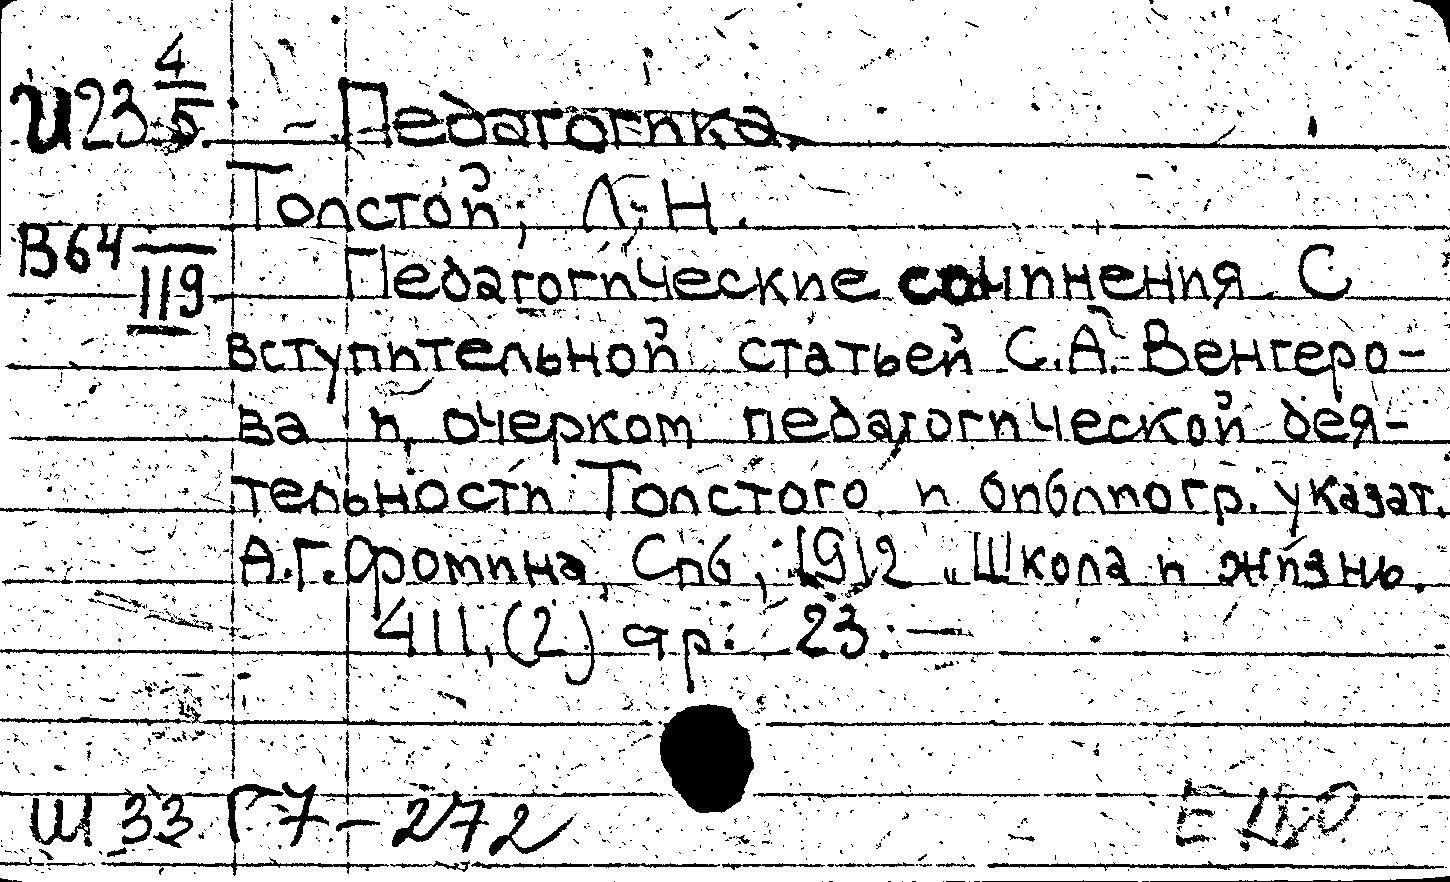 И23 4/5 - Педагогика.
Толстой, Л.Н.
В64 119
Педагогические сочинения С
вступительной статьей С.А. Венгеро-
ва и очерком педагогической дея-
тельности Толстого и библиогр. указат.
А.Г. Фомина, Спб, 1912 „Школа и жизнь.
411,(2) стр. 23.—
Ш 33 Г7-272